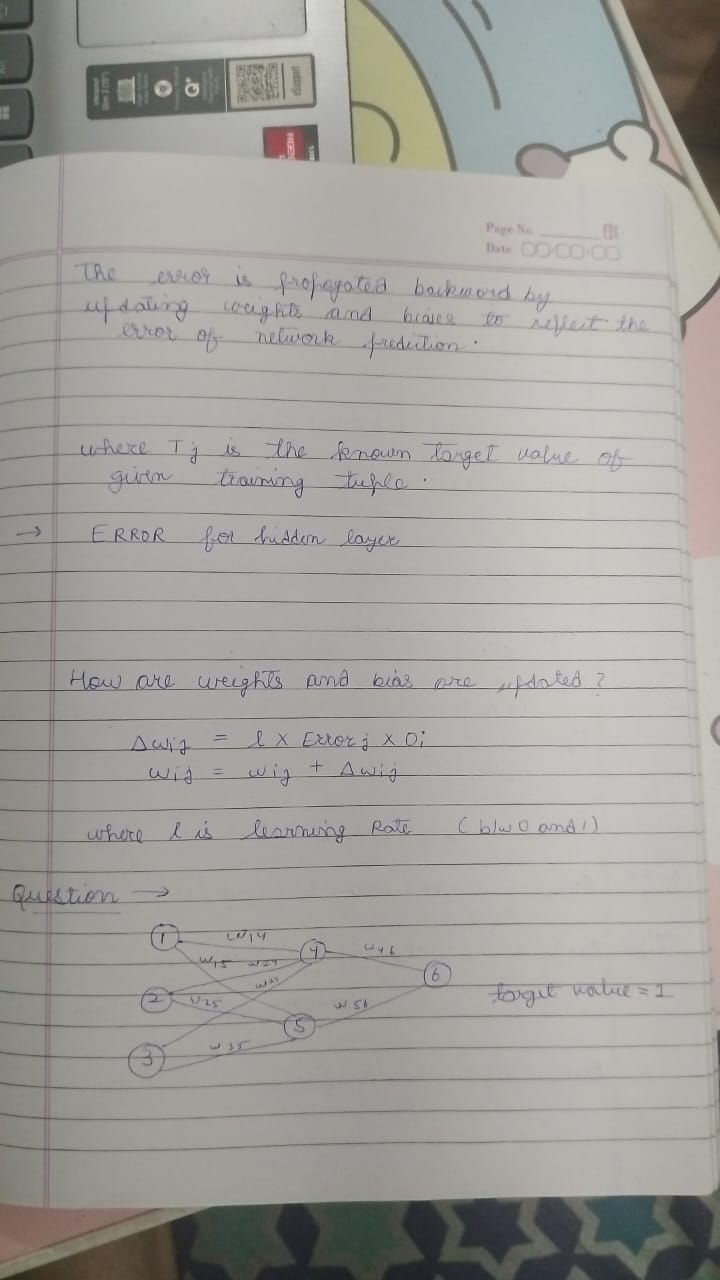 Page No.
Date
The error is propogated backword by
updating weights and biases to reflect the
error of network prediction.
where Tj is the known target value of
given training tuple.
→ ERROR for hidden layer
How are weights and bias are updated?
Δwij = l x Errorj x Oi
wij = wij + Δwij
where l is learning Rate (b/w 0 and 1)
Question →
1 w14 4 w46
w15 w24 6
2 w25 w34 w56 target value = 1
5
3 w35